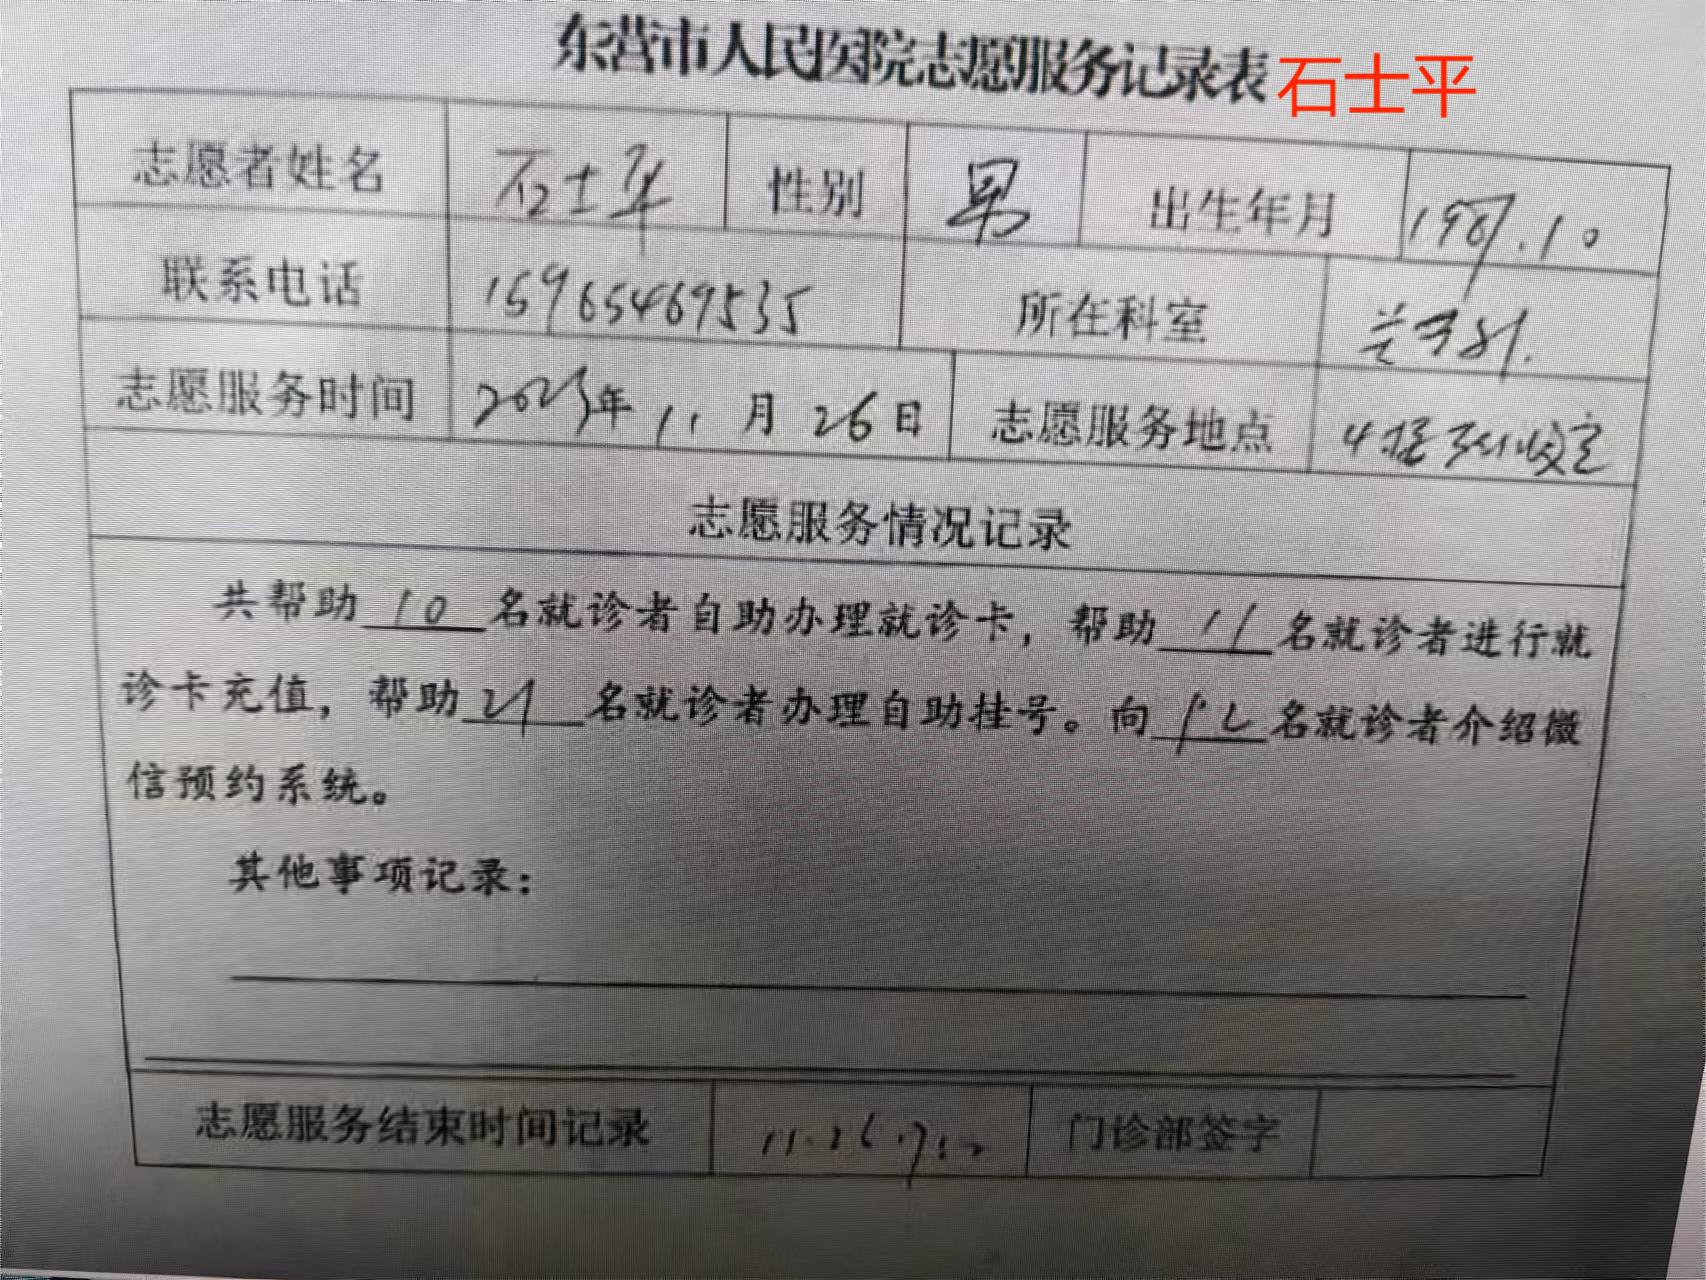 东营市人民医院志愿服务记录表 石士平
志愿者姓名 石士平 性别 男 出生年月 1987.10
联系电话 15965469535 所在科室
志愿服务时间 2023年11月26日 志愿服务地点 4楼
志愿服务情况记录
共帮助 10 名就诊者自助办理就诊卡，帮助 11 名就诊者进行就
诊卡充值，帮助 21 名就诊者办理自助挂号。向 12 名就诊者介绍微
信预约系统。
其他事项记录：
志愿服务结束时间记录 11.26. 门诊部签字